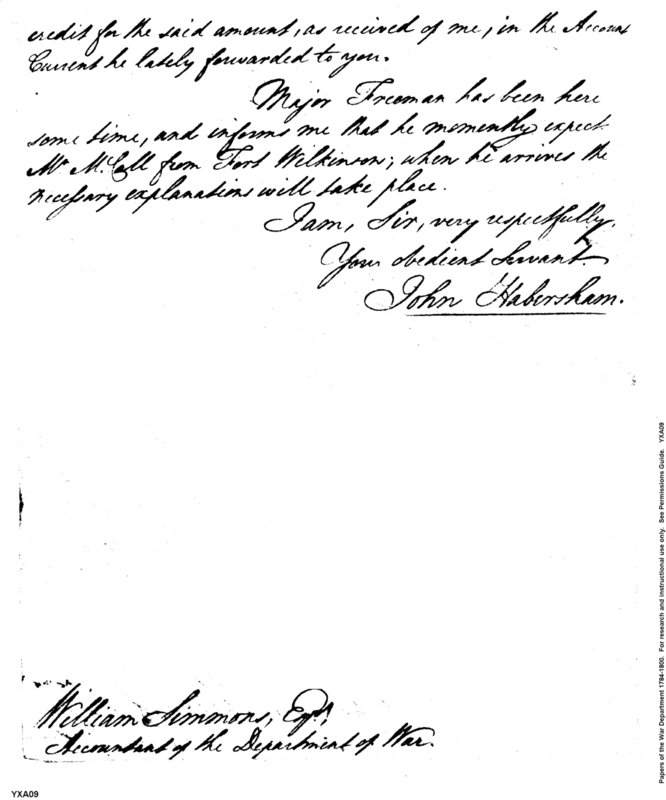 credit for the said amount, as received of me, in the Account
Current he lately forwarded to you.
Major Freeman has been here
some time, and informs me that he momently expect
Mr. McCall from Fort Wilkinson; when he arrives the
necessary explanations will take place.
I am, Sir, very respectfully,
Your obedient Servant.
John Habersham.
William Simmons, Esqr.
Accountant of the Department of War.
YXA09
Papers of the War Department 1784-1800. For research and instructional use only. See Permissions Guide. YXA09